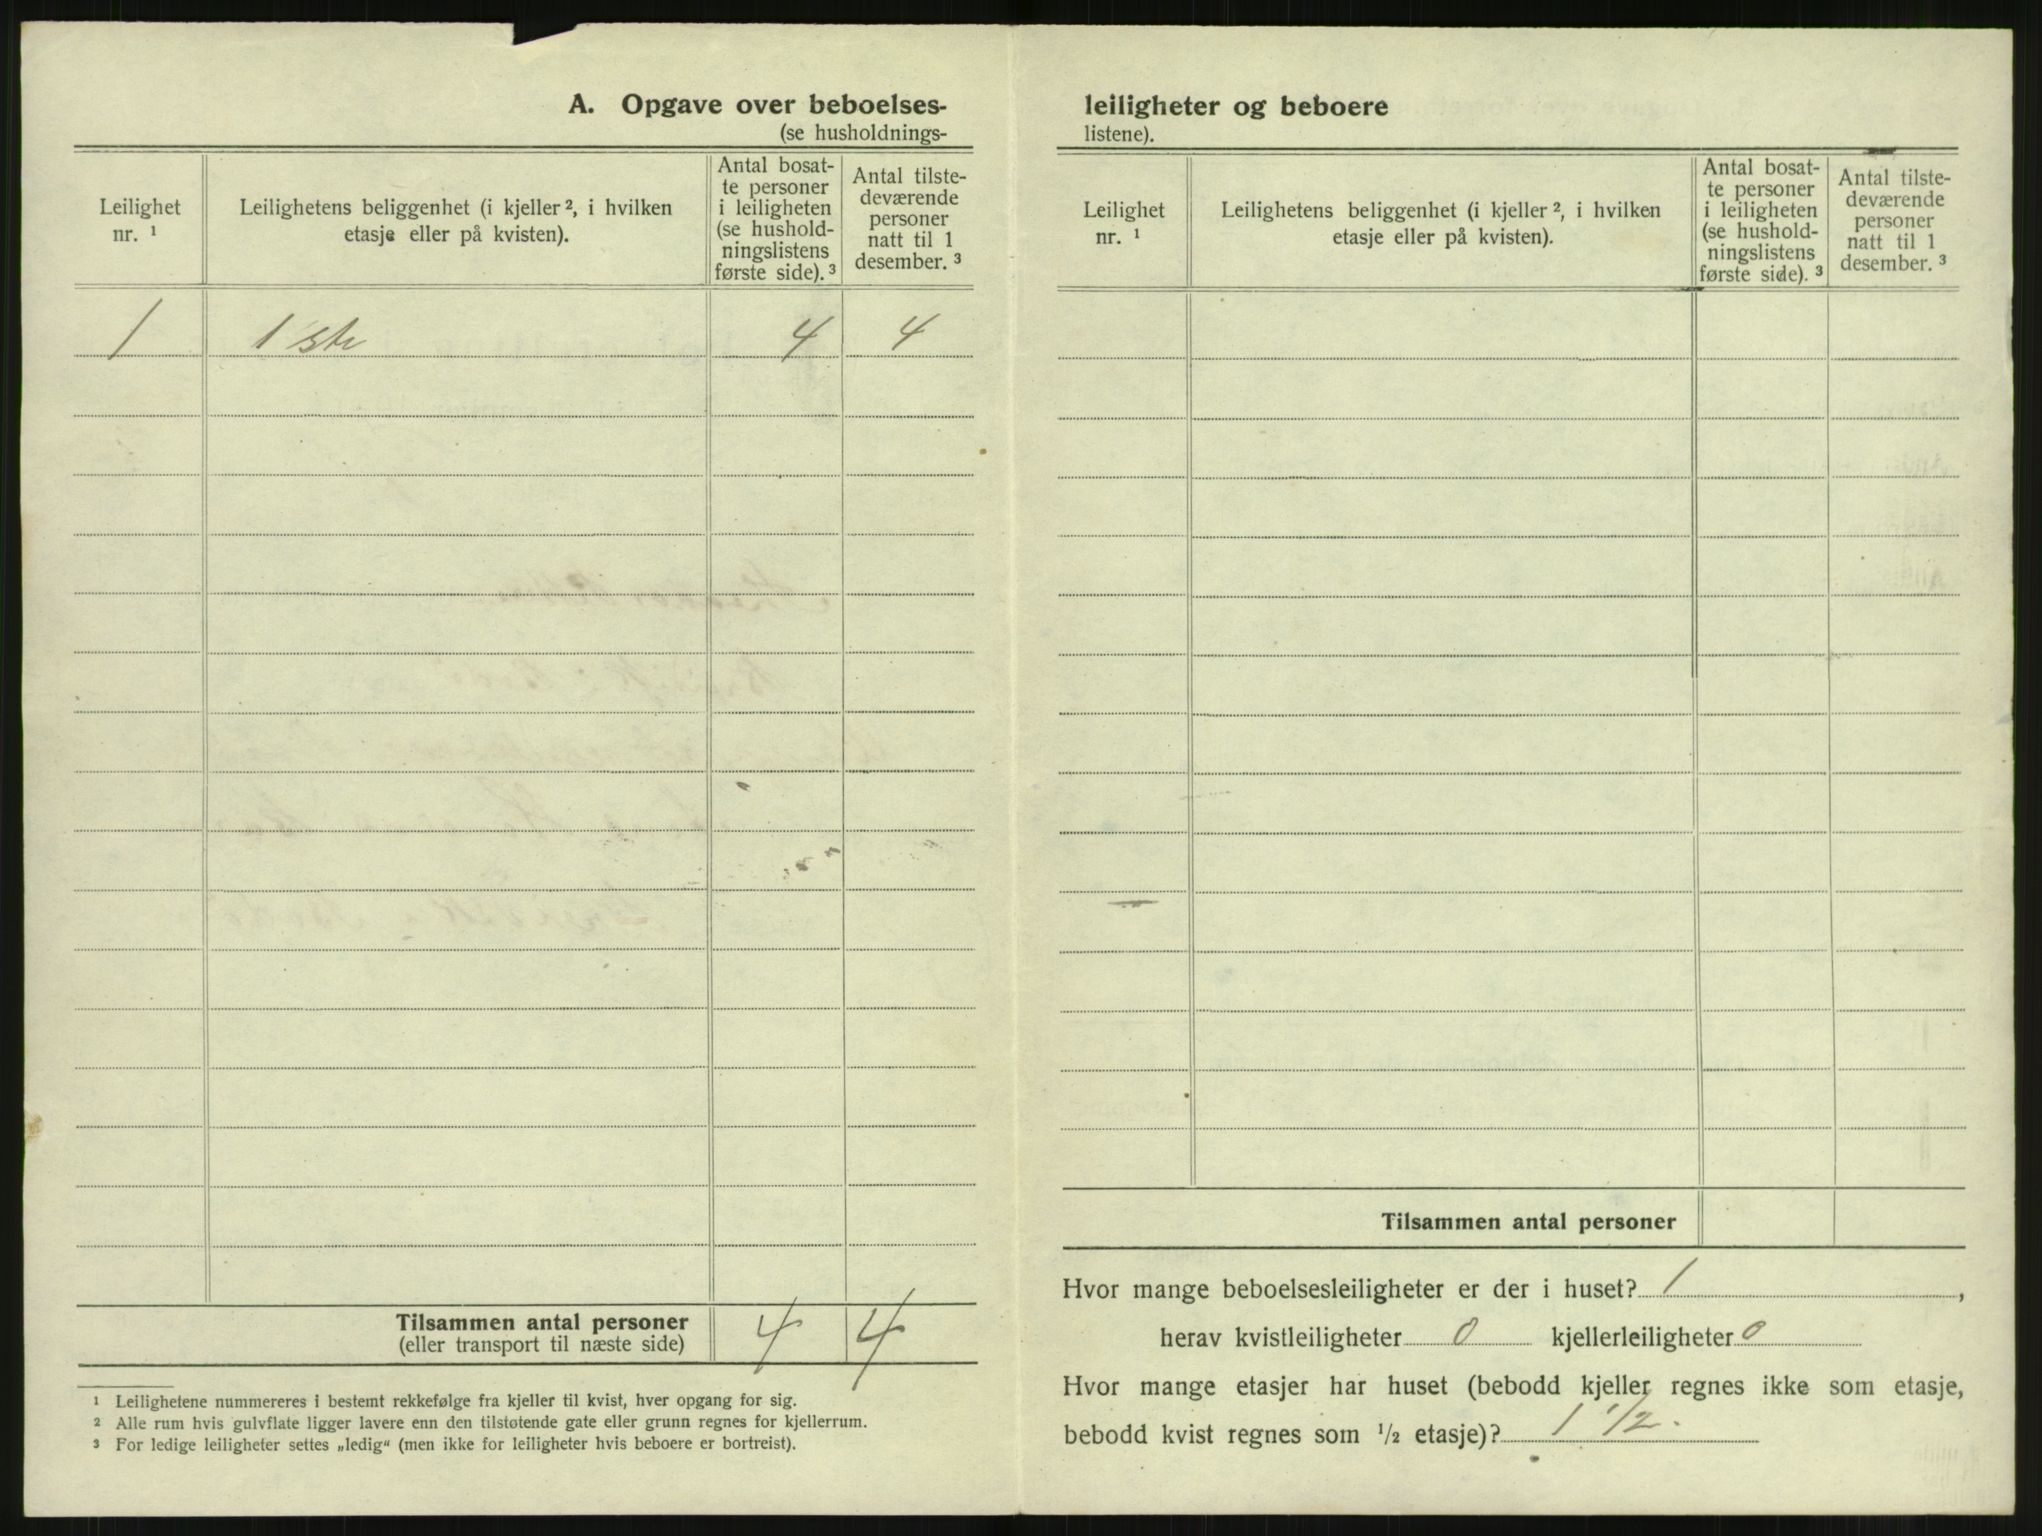 A. Opgave over beboelses-
(se husholdnings-
Leilighet
nr. ¹
Leilighetens beliggenhet (i kjeller ², i hvilken
etasje eller på kvisten).
Antal bosat-
te personer
i leiligheten
(se hushold-
ningslistens
første side). ³
Antal tilste-
deværende
personer
natt til 1
desember. ³
1 1 ste 4 4
Tilsammen antal personer 4 4
(eller transport til næste side)
¹ Leilighetene nummereres i bestemt rekkefølge fra kjeller til kvist, hver opgang for sig.
² Alle rum hvis gulvflate ligger lavere enn den tilstøtende gate eller grunn regnes for kjellerrum.
³ For ledige leiligheter settes „ledig“ (men ikke for leiligheter hvis beboere er bortreist).
leiligheter og beboere
listene).
Leilighet
nr. ¹
Leilighetens beliggenhet (i kjeller ², i hvilken
etasje eller på kvisten).
Antal bosat-
te personer
i leiligheten
(se hushold-
ningslistens
første side). ³
Antal tilste-
deværende
personer
natt til 1
desember. ³
Tilsammen antal personer
Hvor mange beboelsesleiligheter er der i huset? 1,
herav kvistleiligheter 0 kjellerleiligheter 0
Hvor mange etasjer har huset (bebodd kjeller regnes ikke som etasje,
bebodd kvist regnes som ½ etasje)? 1 ½.